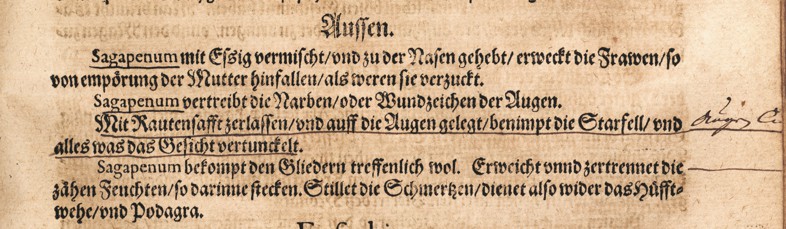 Aussen.
Sagapenum mit Essig vermischt/vnd zu der Nasen gehebt/ erweckt die Frawen/so
von empörung der Mutter hinfallen/als weren sie verzuckt.
Sagapenum vertreibt die Narben/oder Wundzeichen der Augen.
Mit Rautensafft zerlassen/vnd auff die Augen gelegt/benimpt die Starfell/ vnd
alles was das Gesicht vertunckelt.
Sagapenum bekompt den Gliedern treffenlich wol. Erweicht vnnd zertrennet die
zähen Feuchten/so darinne stecken. Stillet die Schmertzen/dienet also wider das Hüfft-
wehe/vnd Podagra.